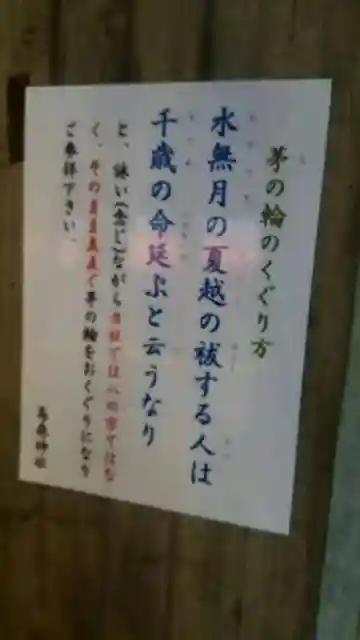 茅の輪のくぐり方
水無月の夏越の祓する人は
千歳の命延ぶと云うなり
と、詠い(念じ)ながら当社では八の字ではな
く、そのまま真直ぐ茅の輪をおくぐりになり
ご参拝下さい。
神社